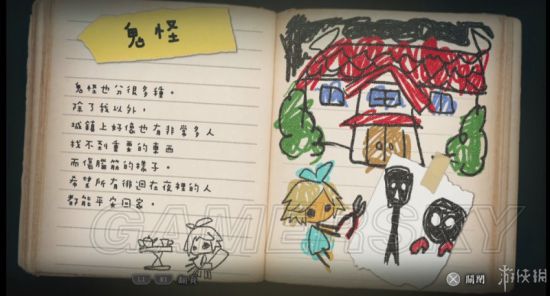 鬼怪
鬼怪也分很多種。
除了我以外，
城鎮上好像也有非常多人
找不到重要的東西
而傷腦筋的樣子。
希望所有徘徊在夜裡的人
都能平安回家。
GAMERSKY
翻頁
關閉
游侠網